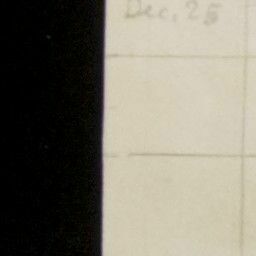 Dec. 25